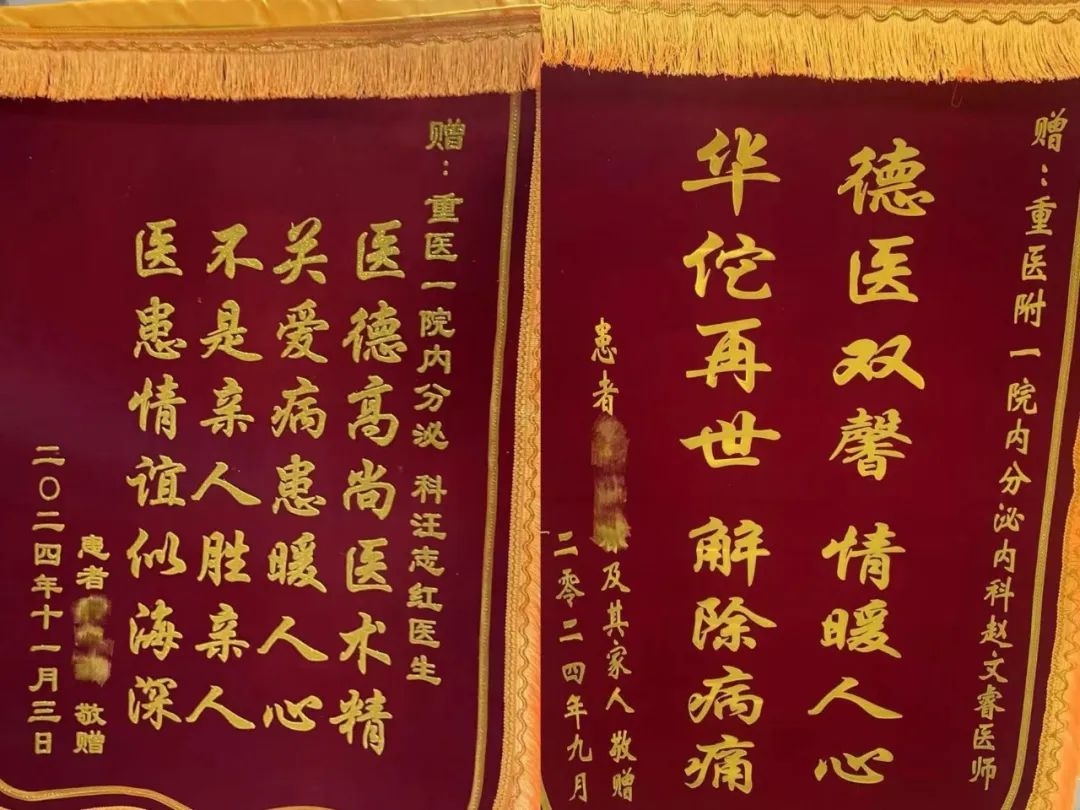 赠：重医一院内分泌 科汪志红医生
医德高尚医术精
关爱病患暖人心
不是亲人胜亲人
医患情谊似海深
患者 敬赠
二〇二四年十一月三日
赠：重医附一院内分泌内科赵文睿医师
德医双馨 情暖人心
华佗再世 解除病痛
患者 及其家人敬赠
二零二四年九月